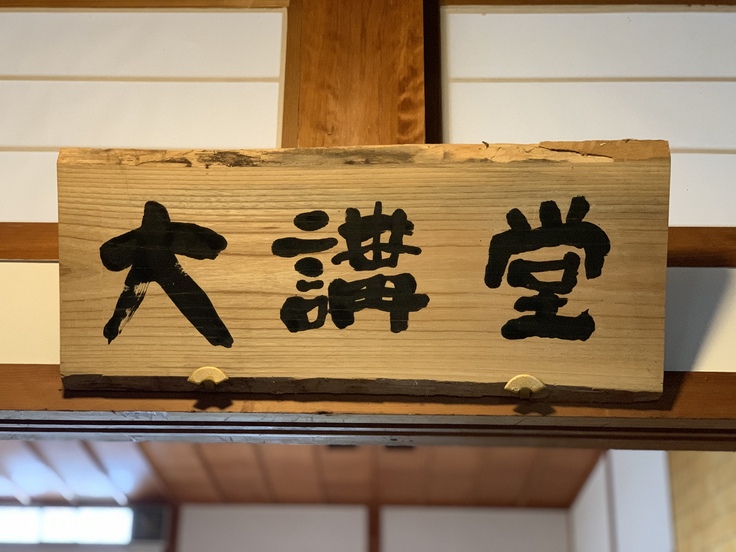 大講堂